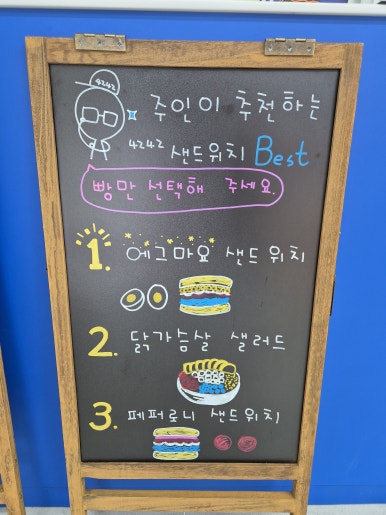 4242
주인이 추천하는
4242 샌드위치 Best
빵만 선택해 주세요.
1. 에그마요 샌드위치
2. 닭가슴살 샐러드
3. 페퍼로니 샌드위치